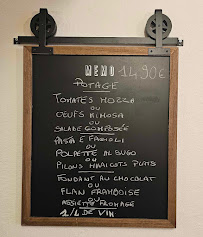 MEMO 14.90€
POTAGE
TOMATES MOZZA
OU
OEUFS MIMOSA
OU
SALADE COMPOSÉE
PASTA E FAGIOLI
OU
POLPETTE AL SUGO
OU
PILONS HARICOTS PLATS
FONDANT AU CHOCOLAT
OU
FLAN FRAMBOISE
OU
ASSIETTE FROMAGE
1/4 DE VIN